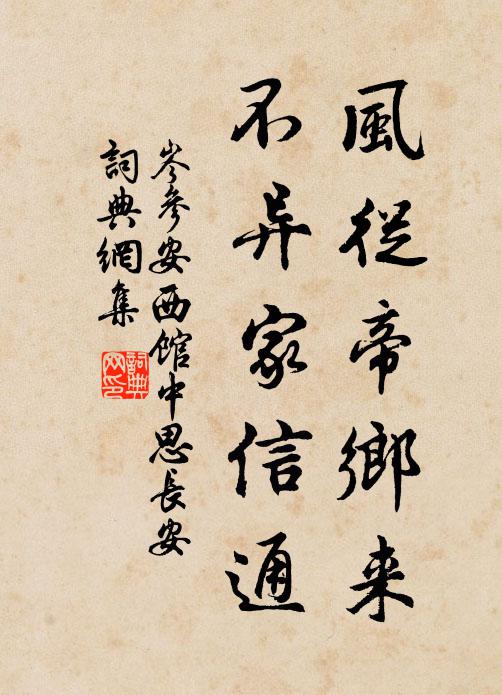 風從帝鄉来
不异家信通
岑參安西館中思長安
詞典網集
詞典
网印